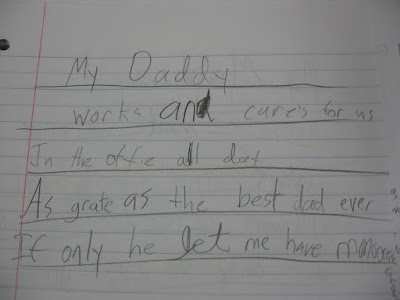 My Daddy
works and cares for us
In the offie all day
As grate as the best dad ever
If only he let me have